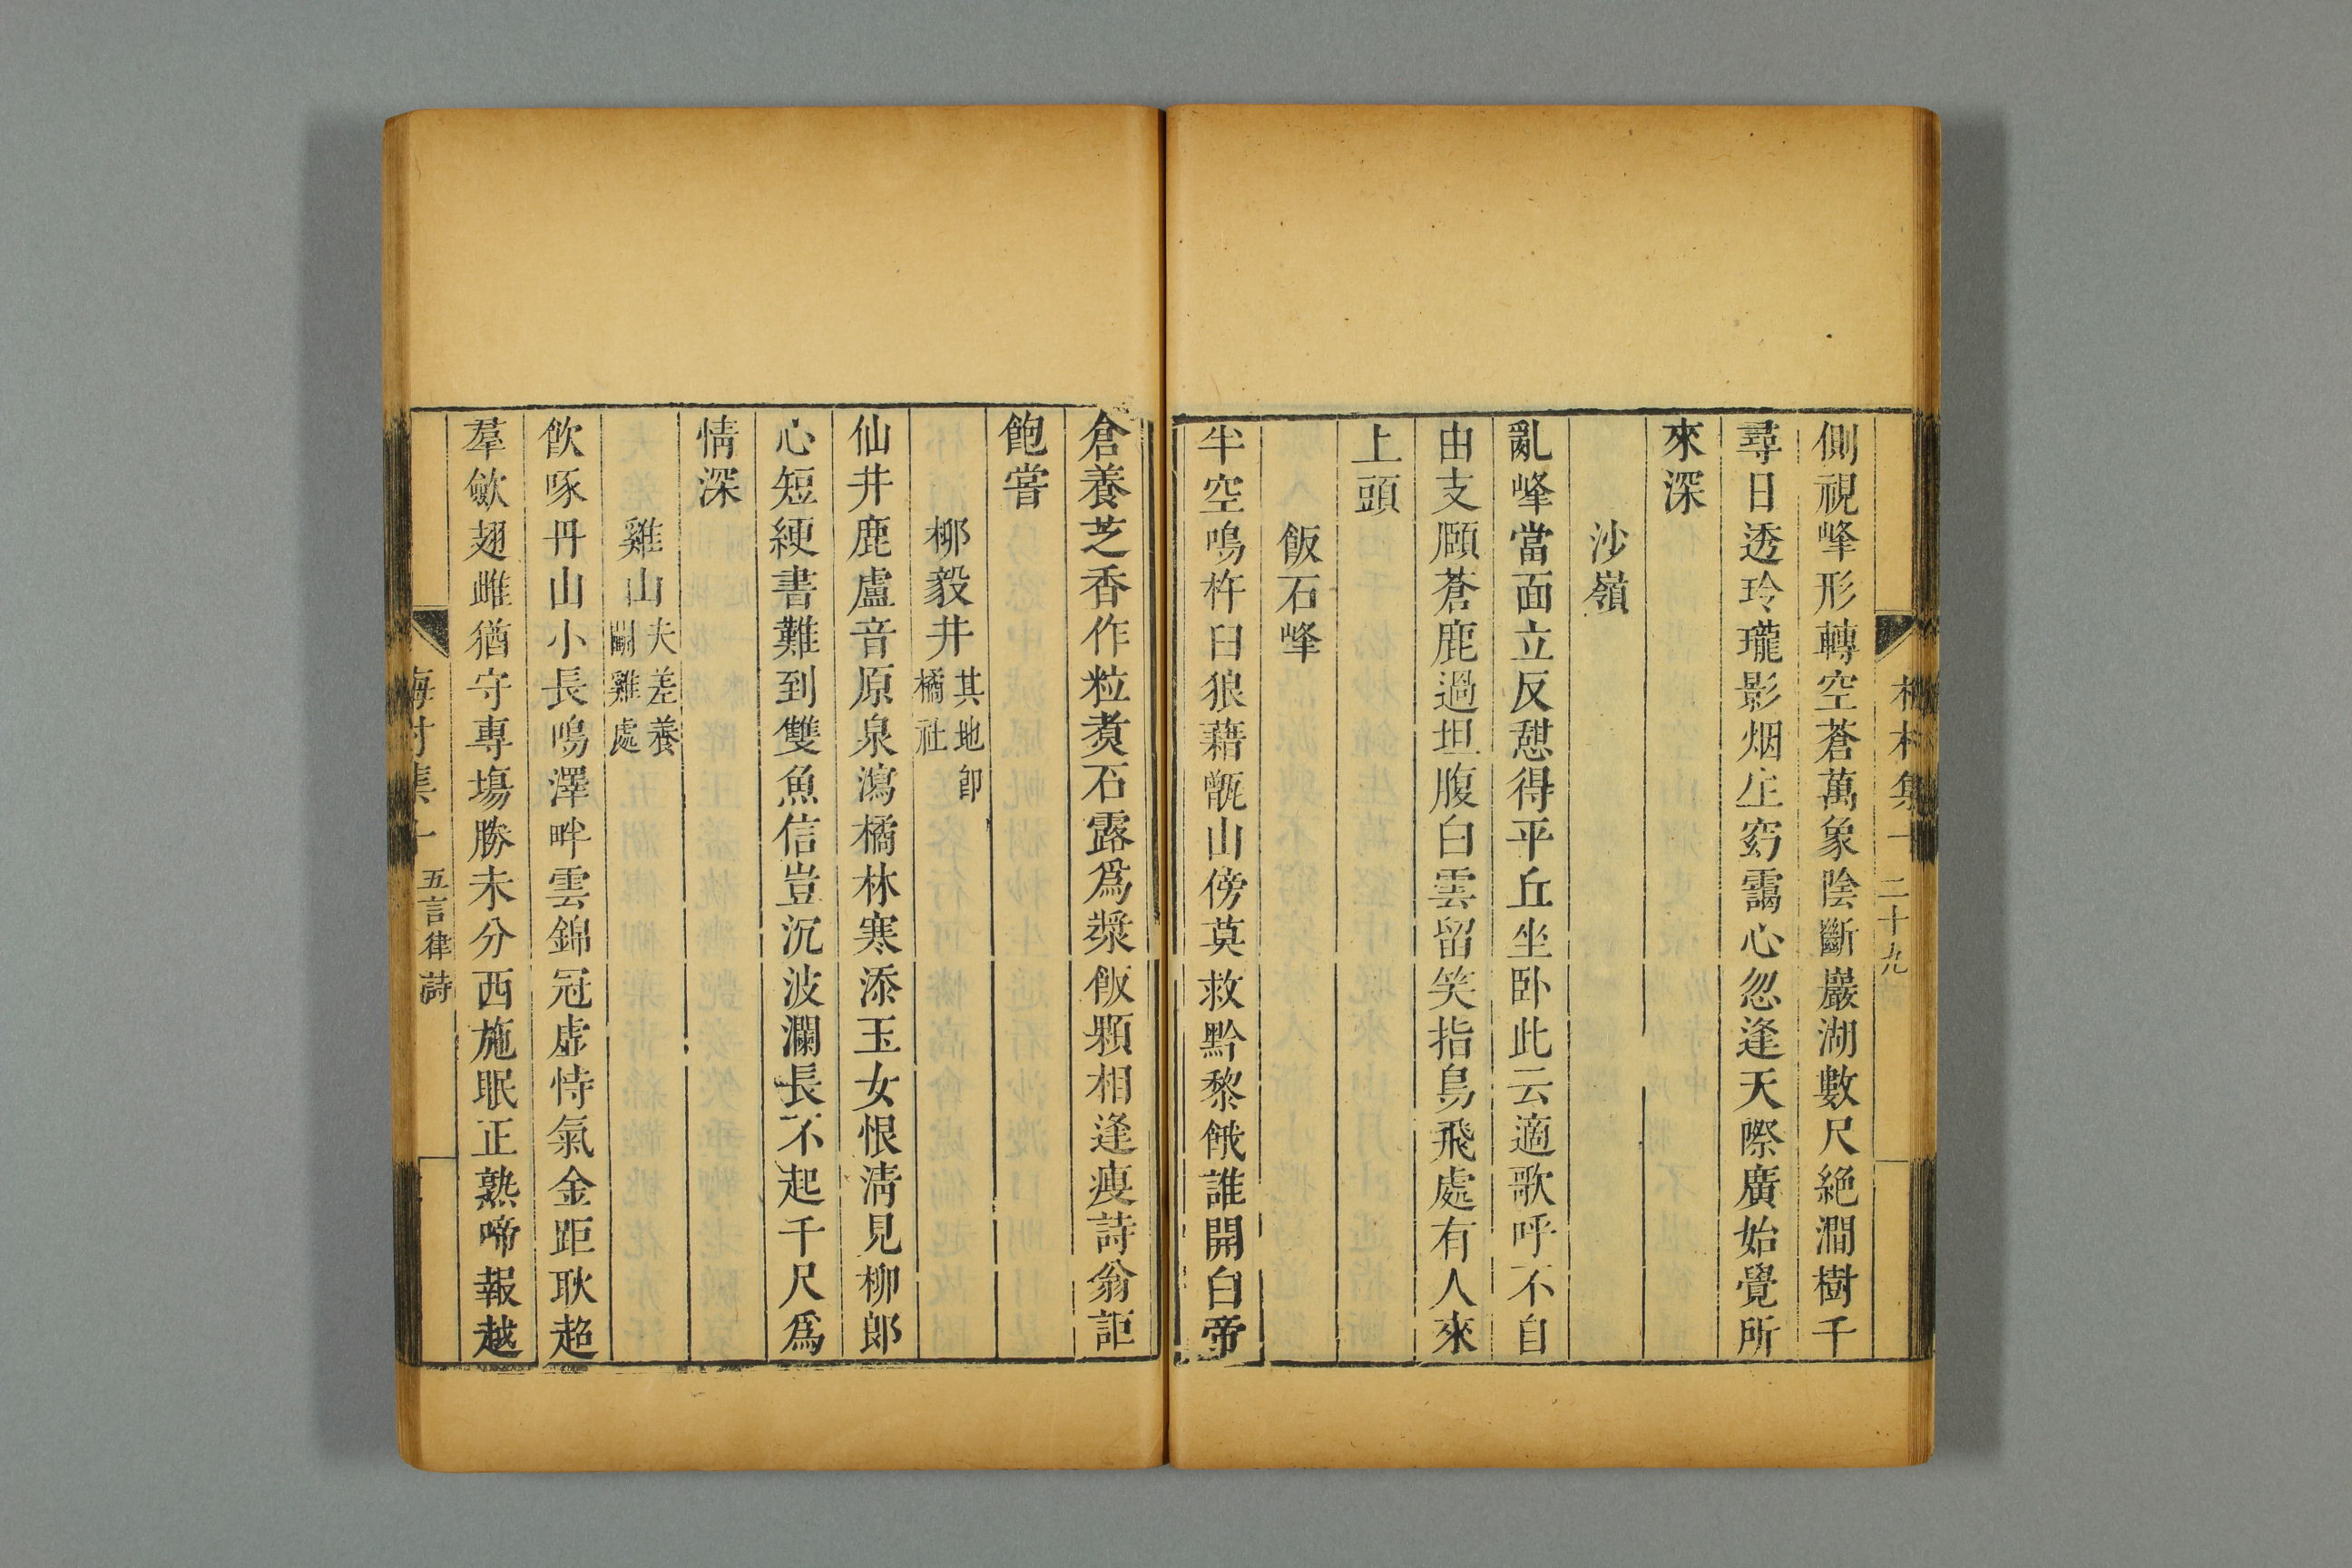 側視峰形轉空蒼萬象陰斷巖湖數尺絕澗樹千
尋日透玲瓏影烟生窈靄心忽逢天際廣始覺所
來深
沙嶺
亂峰當面立反憇得平丘坐卧此云適歌呼不自
由支頤蒼鹿過坦腹白雲留笑指鳥飛處有人來
上頭
飯石峰
半空鳴杵臼狼藉甑山傍莫救黔黎餓誰開白帝
倉養芝香作粒煑石露爲漿飯顆相逢瘦詩翁詎
飽嘗
柳毅井
其地卽
橘社
仙井鹿盧音原泉瀉橘林寒添玉女恨清見柳郎
心短綆書難到雙魚信豈沉波瀾長不起千尺爲
情深
雞山
夫差養
鬭雞處
飲啄丹山小長鳴澤畔雲錦冠虛恃氣金距耿超
羣斂翅雌猶守專塲勝未分西施眠正熟啼報越
梅村集十
五言律詩
二十九